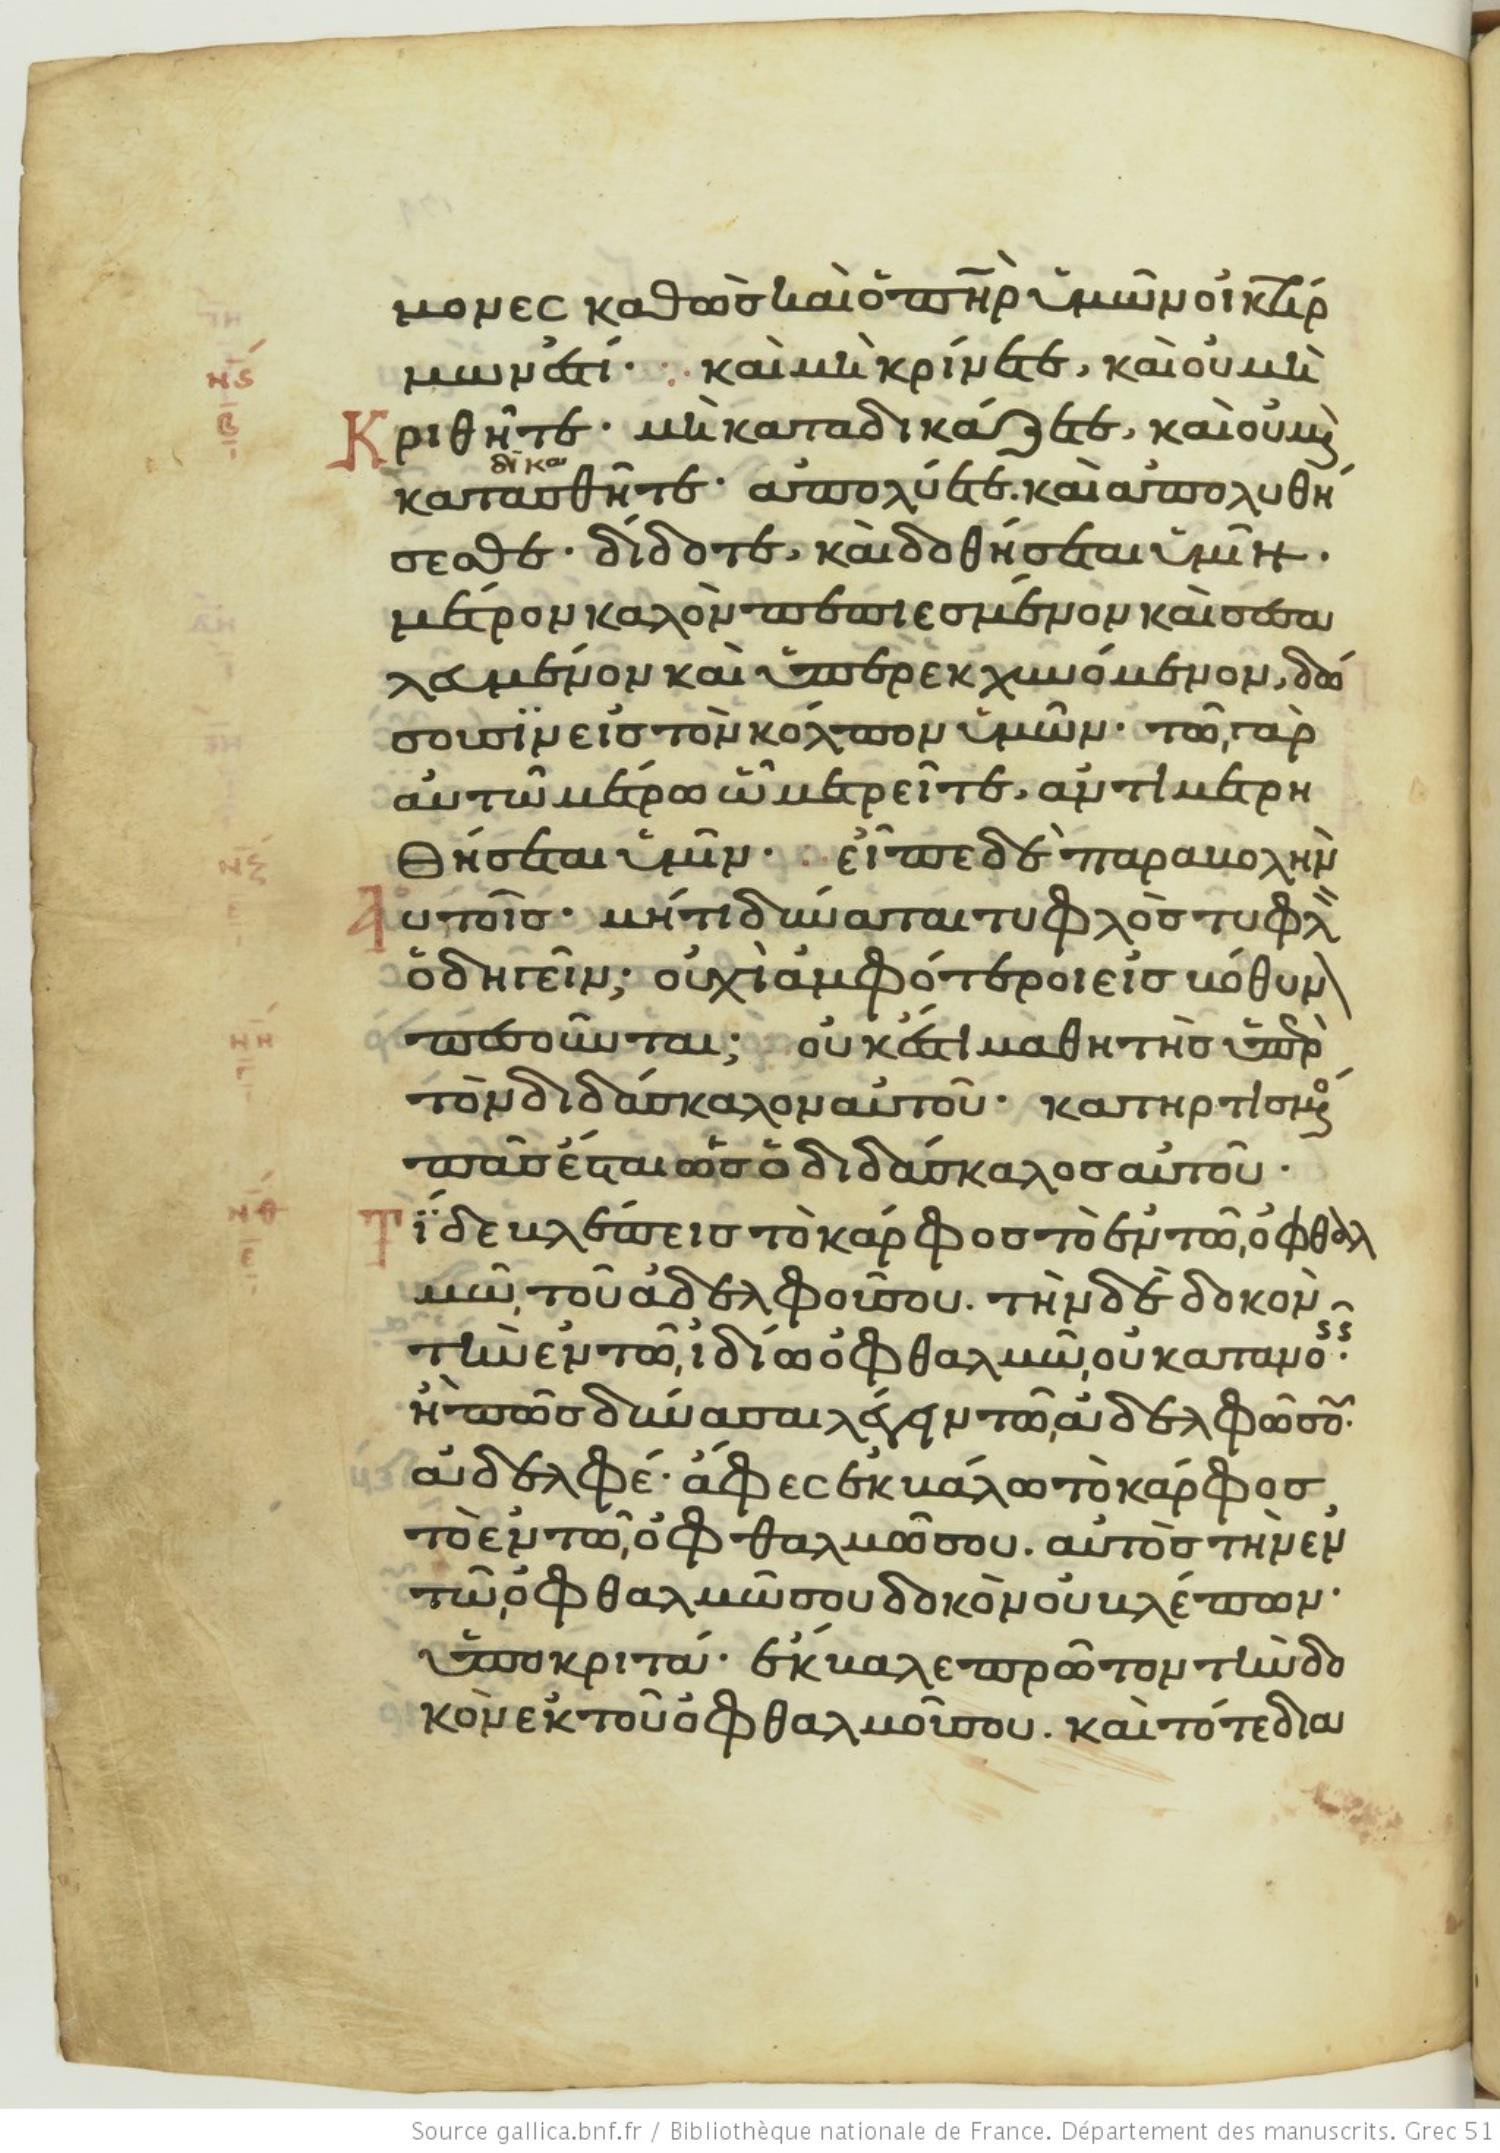 μονες καθὼς καὶ ὁ πη̅ρ ὑμῶν οἰκτίρ
μων ἐστί· καὶ μὴ κρίνετε, καὶ οὐ μὴ
Κριθῆτε· μὴ καταδικάζετε, καὶ οὐ μὴ
δικα
κατασθῆτε· ἀπολύετε. καὶ ἀπολυθή
σεσθε· δίδοτε, καὶ δοθήσεται ὑμῖν·
μέτρον καλὸν πεπιεσμένον καὶ σεσα
λευμένον καὶ ὑπερεκχυνόμενον, δώ
σουσϊν εἰς τὸν κόλπον ὑμῶν· τῶ γὰρ
αὐτῶ μέτρω ὧ μετρεῖτε, ἀντιμετρη
Θήσεται ὑμῖν· εἶπε δὲ παραβολὴν
Αὐτοῖς· μήτι δύναται τυφλὸς τυφλὸν
ὁδηγεῖν; οὐχὶ ἀμφότεροι εἰς βόθυν
πεσοῦνται; οὐκ ἔστι μαθητὴς ὑπὲρ
τὸν διδάσκαλον αὐτοῦ· κατηρτισμένος
πᾶς ἔσται ὡς ὁ διδάσκαλος αὐτοῦ·
Τί δε βλέπεις τὸ κάρφος τὸ ἐν τῶ ὀφθαλ
μῶ τοῦ ἀδελφοῦ σου. τὴν δὲ δοκὸν
τὴν ἐν τῶ ἰδίω ὀφθαλμῶ οὐ κατανοεῖς·
ἢ πῶς δύνασαι λέγειν τῶ ἀδελφῶ σου·
ἀδελφέ· ἄφες ἐκβάλω τὸ κάρφος
τὸ ἐν τῶ ὀφθαλμῶ σου. αὐτὸς τὴν ἐν
τῶ ὀφθαλμῶ σου δοκὸν οὐ βλέπων·
ὑποκριτά· ἔκβαλε πρῶτον τὴν δο
κὸν ἐκ τοῦ ὀφθαλμοῦ σου. καὶ τότε δια
νς
β
νζ
ε
νη
γ
νθ
ε
Source gallica.bnf.fr / Bibliothèque nationale de France. Département des manuscrits. Grec 51